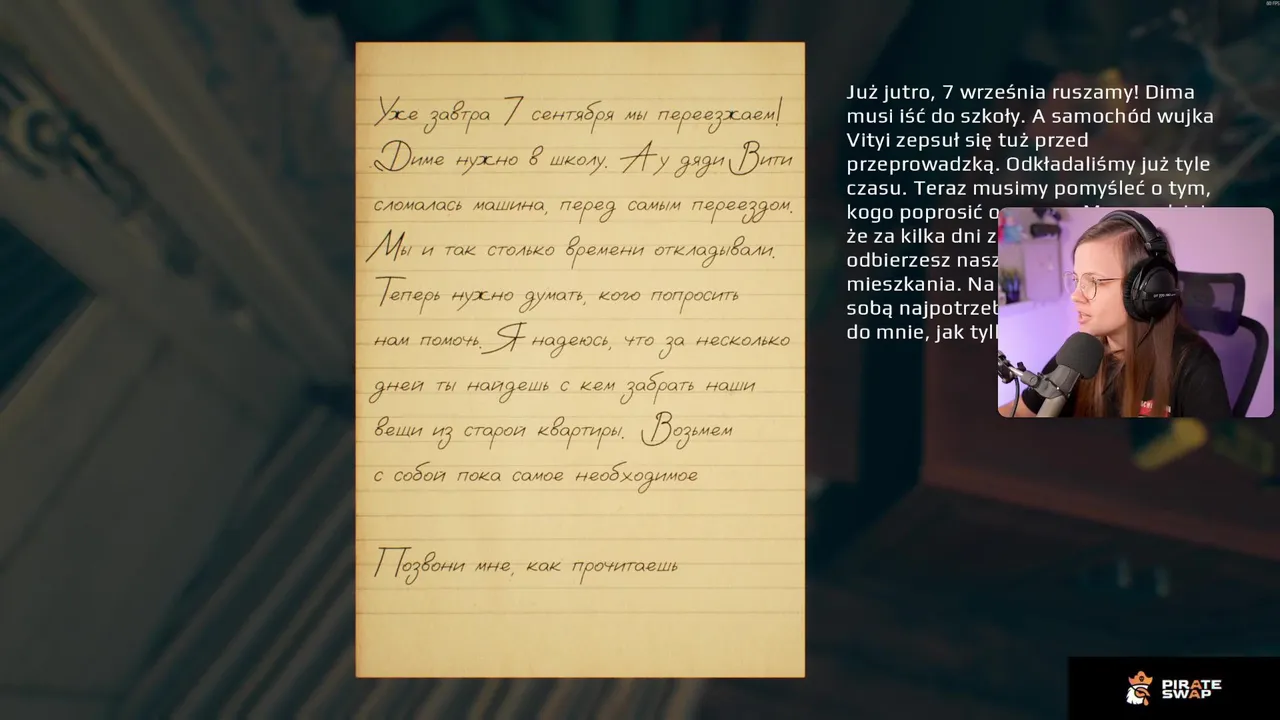 Уже завтра 7 сентября мы переезжаем!
Диме нужно в школу. А у дяди Вити
сломалась машина, перед самым переездом.
Мы и так столько времени откладывали.
Теперь нужно думать, кого попросить
нам помочь. Я надеюсь, что за несколько
дней ты найдешь с кем забрать наши
вещи из старой квартиры. Возьмем
с собой пока самое необходимое
Позвони мне, как прочитаешь
Już jutro, 7 września ruszamy! Dima
musi iść do szkoły. A samochód wujka
Vityi zepsuł się tuż przed
przeprowadzką. Odkładaliśmy już tyle
czasu. Teraz musimy pomyśleć o tym,
kogo poprosić o
że za kilka dni z
odbierzesz nasz
mieszkania. Na
sobą najpotrzeb
do mnie, jak tyl
PIRATE
SWAP